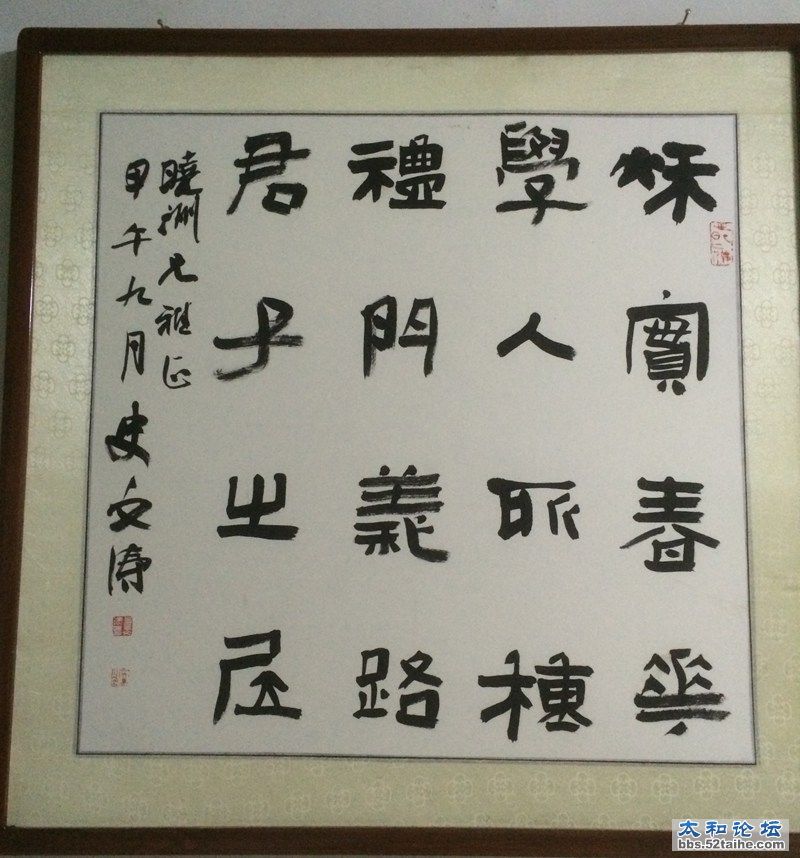 秋實春華
學人所種
禮門義路
君子之居
曉洲兄雅正
甲午九月 史文涛
太和论坛
bbs.52taihe.com